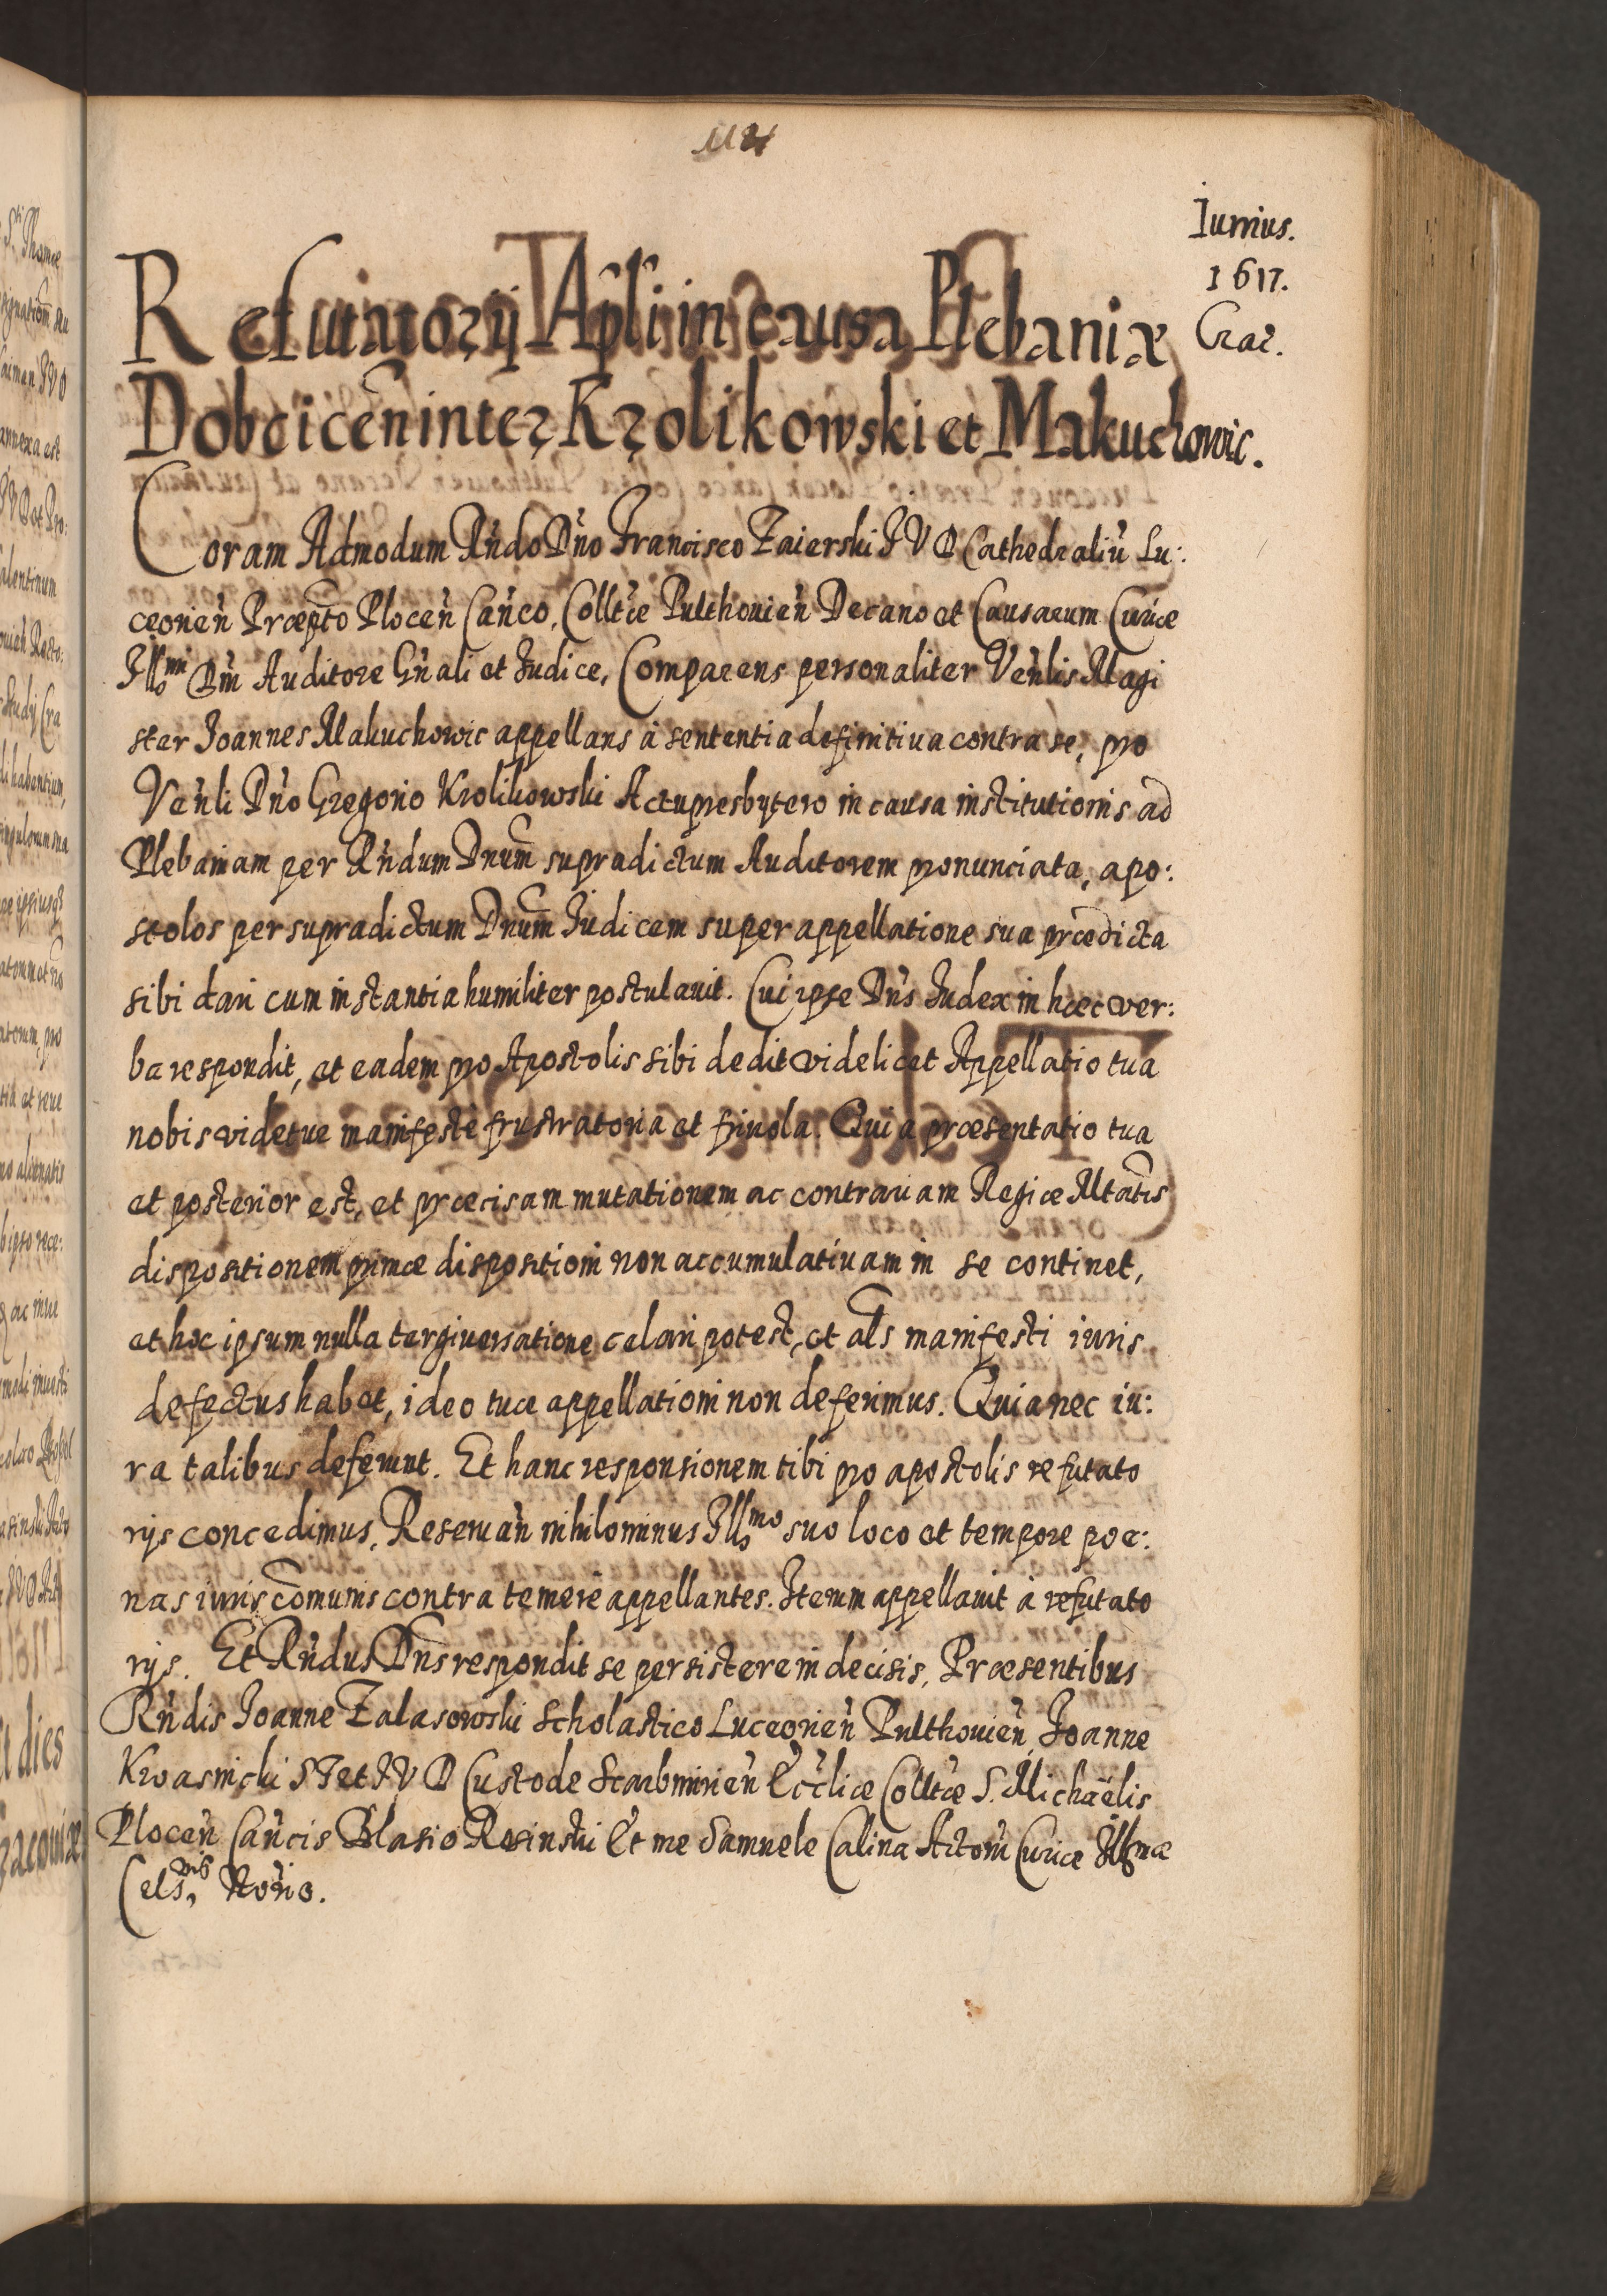 Iunius.
1617.
Crac.
Refutatorÿ Apl̃i in causa Plebaniæ
Dobcicen̄ inter Krolikowski et Makuchowic.
Coram Admodum Rñdo Dño Francisco Zaierski J V D Cathedraliũ Lu:
ceorieñ Præpt̃o Ploceñ Cañco, Colltæ Pulthouieñ Decano et Causarum Curiæ
Jll̃mi Dñi Auditore Gñali et Judice, Comparens personaliter Veñlis Magi
ster Joannes Makuchowic appellans à sententia definitiua contra se, pro
Veñli Dño Gregorio Krolikowski Actupresbytero in causa institutionis ad
Plebaniam per Rñdum Dnũm supradictum Auditorem pronunciata, apo:
stolos per supradictum Dnũm Judicem super appellatione sua prædicta
sibi dari cum instantia humiliter postulauit. Cui ipse Dñs Judex in hæc ver:
ba respondit, et eadem pro Apostolis sibi dedit videlicet Appellatio tua
nobis videtur manifestè frustratoria et friuola. Quia præsentatio tua
et posterior est, et præcisam mutationem ac contrariam Regiæ Mtãtis
dispositionem primæ dispositioni non accumulatiuam in se continet,
et hoc ipsum nulla tergiuersatione celari potest, et al̃s manifesti iuris
defectus habet, ideo tuæ appellationi non deferimus. Quia nec iu:
ra talibus deferunt. Et hanc responsionem tibi pro apostolis refutato
rijs concedimus, Reseruañ nihilominus Jll̃mo suo loco et tempore poe:
nas iuris com̃unis contra temerè appellantes. Iterum appellauit à refutato
rijs. Et Rñdus Dñs respondit se persistere in decisis, Præsentibus
Rñdis Joanne Zalasowski Scholastico Luceorieñ Pulthouieñ, Joanne
Krasinski S T et J V D Custode Scarbimirieñ Ecc̃liæ Colltæ S. Michaëlis
Ploceñ Cañcis Blasio Rosinski Et me Samuele Calina Actorũ Curiæ Jll̃mæ
Cels̃nis Norio.